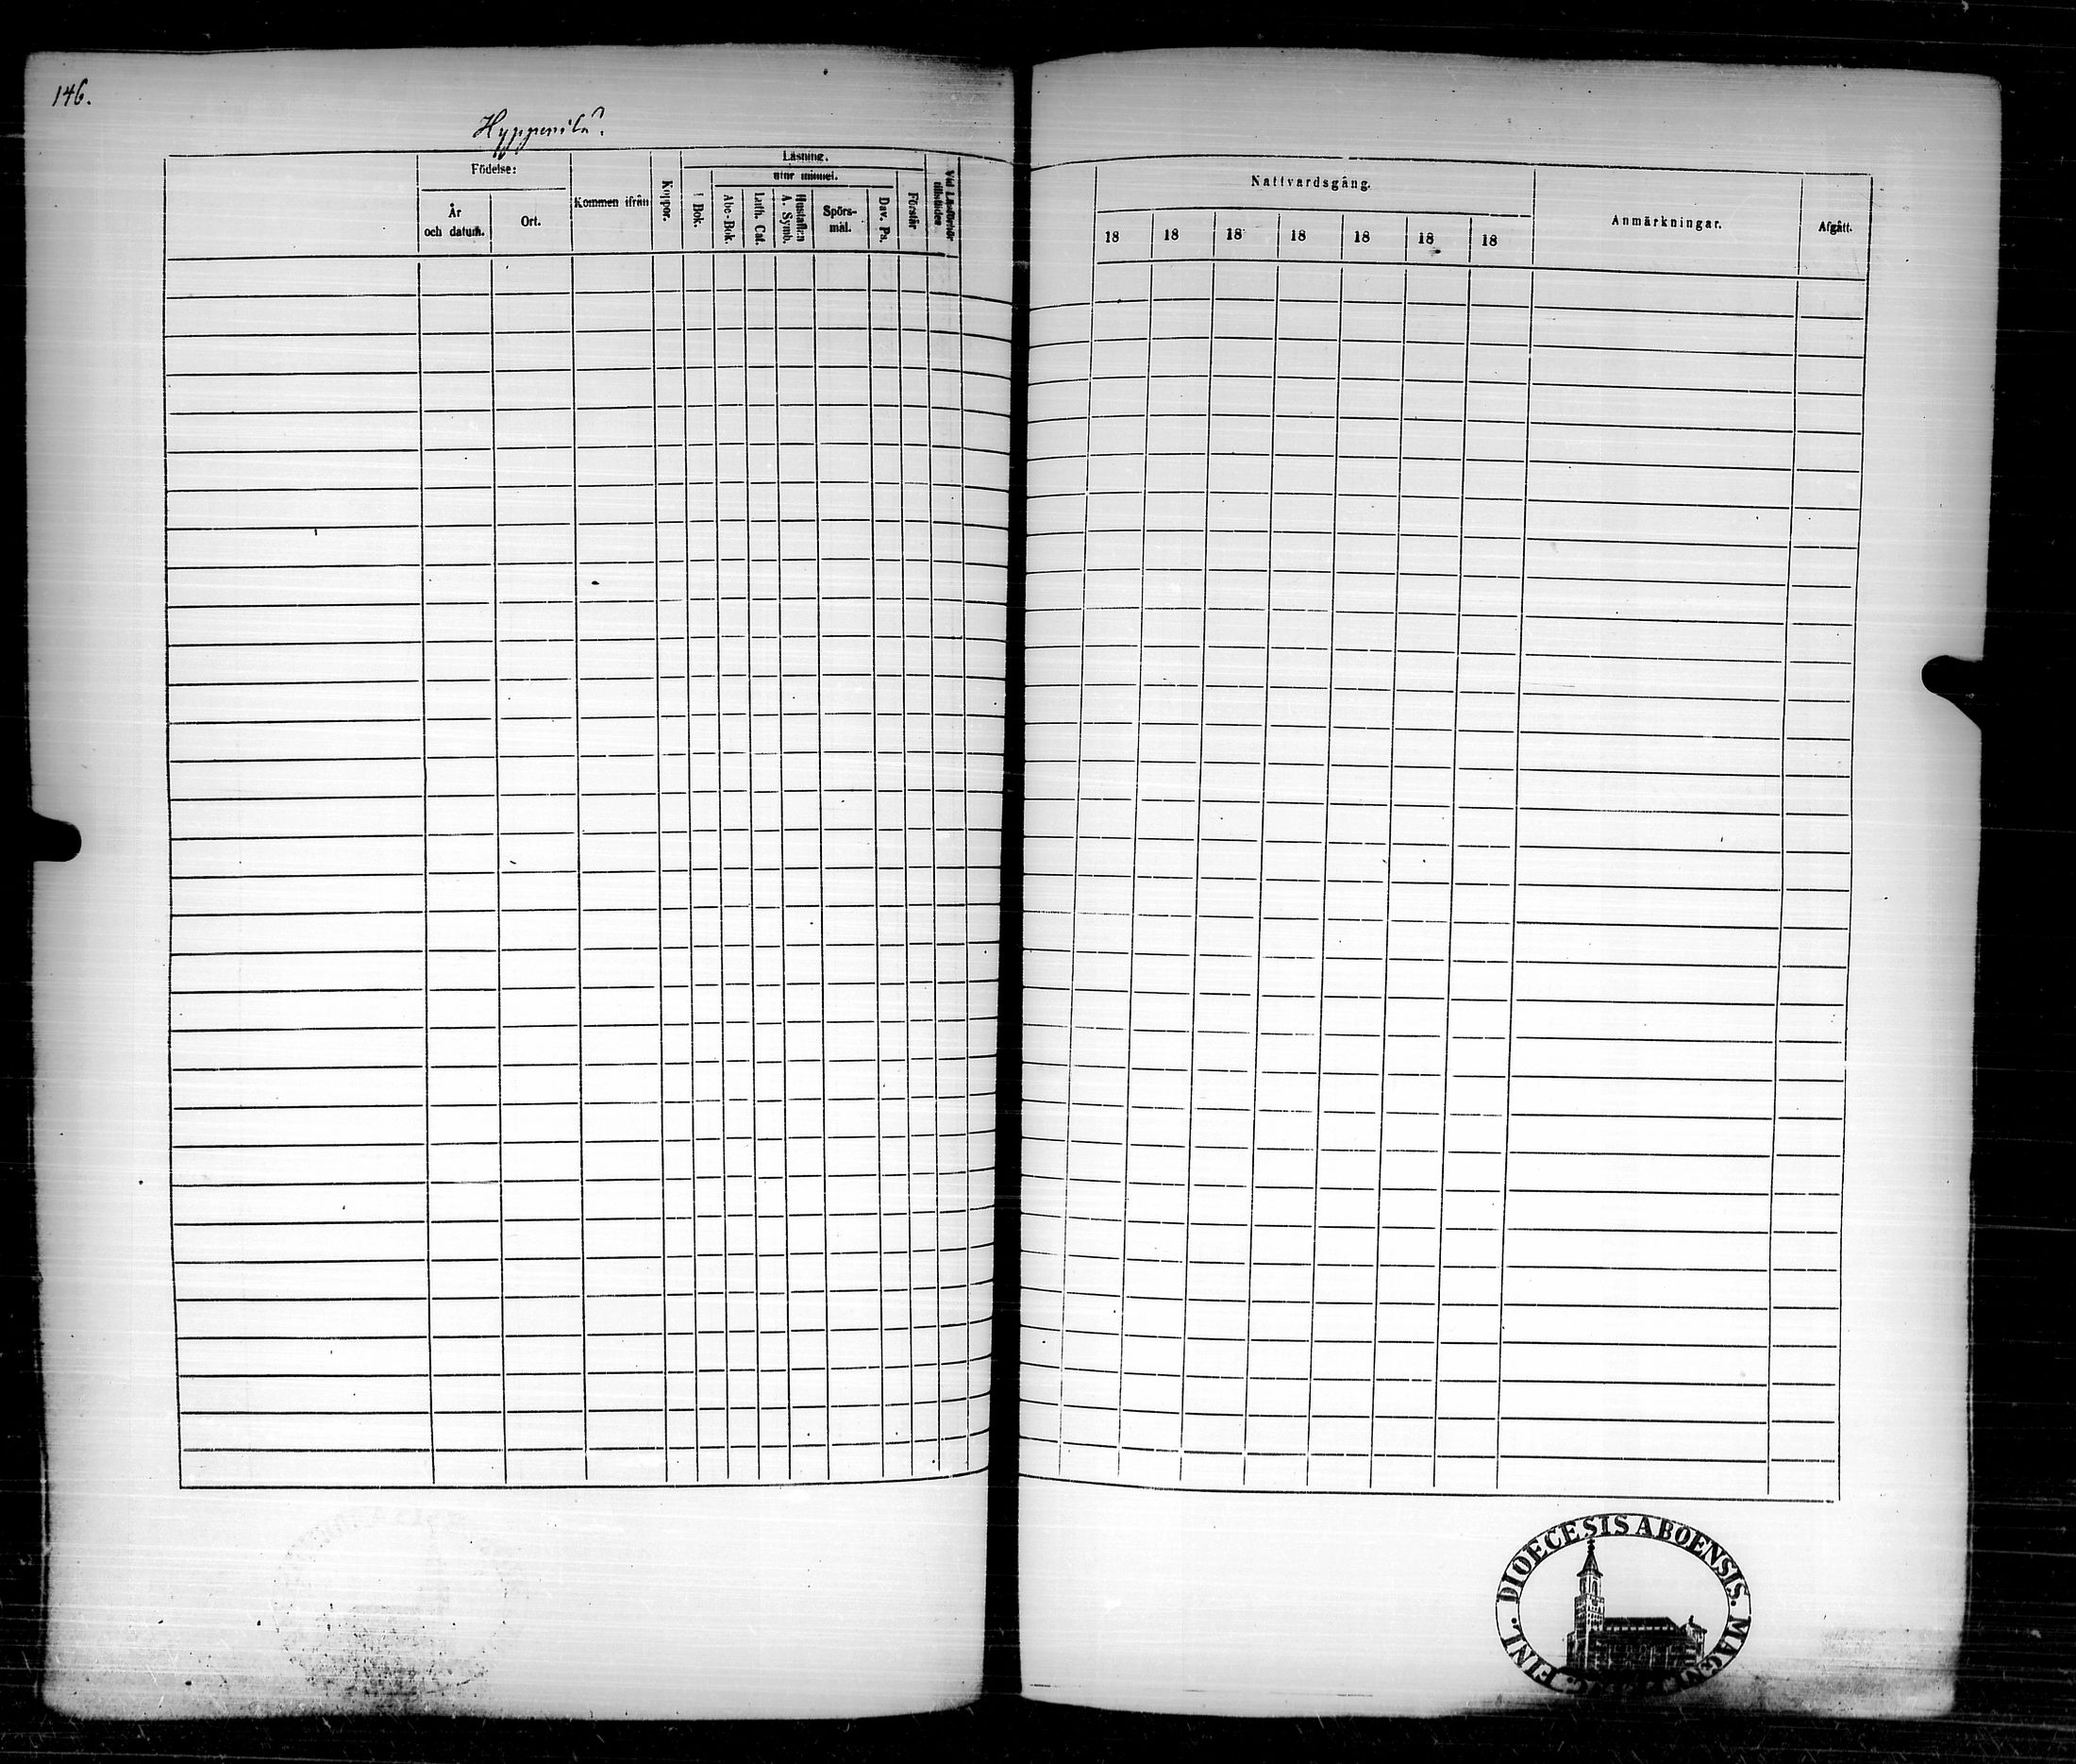 146.
Hypperilä.
Födelse:
År
och datum.
Ort.
Kommen ifrån
Koppor.
Läsning.
I Bok.
utur minnet.
Abc-Bok.
Luth. Cat.
Hustaflan
A. Symb.
Spörs-
mål.
Dav. Ps.
Förstår
Vid Läsförhör
tillstädes.
Nattvardsgång.
18 18 18 18 18 18 18
Anmärkningar.
Afgått.
FINL. DIOECESIS ABOENSIS.